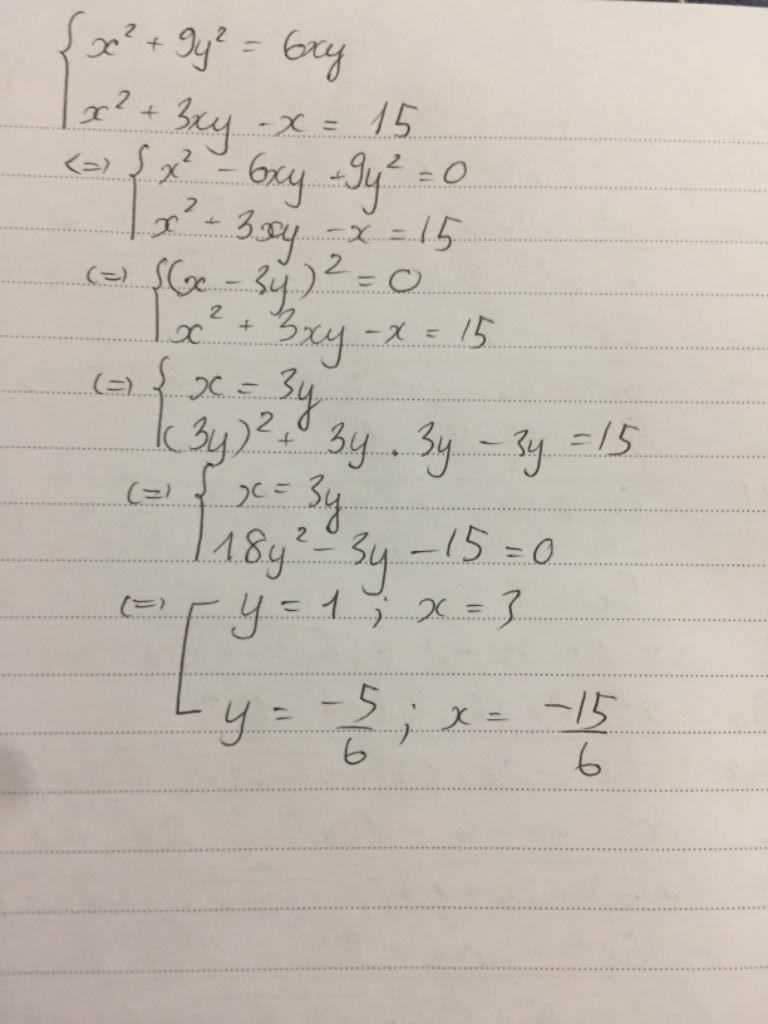 { x² + 9y² = 6xy
x² + 3xy - x = 15
<=> { x² - 6xy + 9y² = 0
x² + 3xy - x = 15
(=) { (x - 3y)² = 0
x² + 3xy - x = 15
(=) { x = 3y
(3y)² + 3y . 3y - 3y = 15
(=) { x = 3y
18y² - 3y - 15 = 0
(=) [ y = 1 ; x = 3
y = -5/6 ; x = -15/6